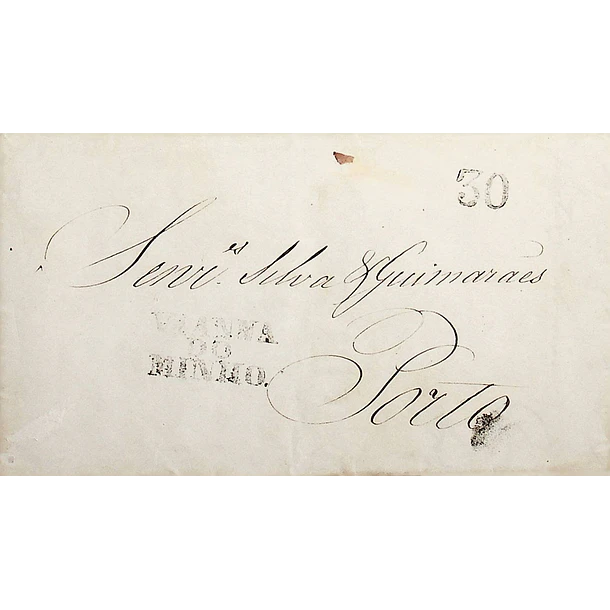 30
Senr.es Silva & Guimaraẽs
VIANNA
DO
MINHO.
Porto